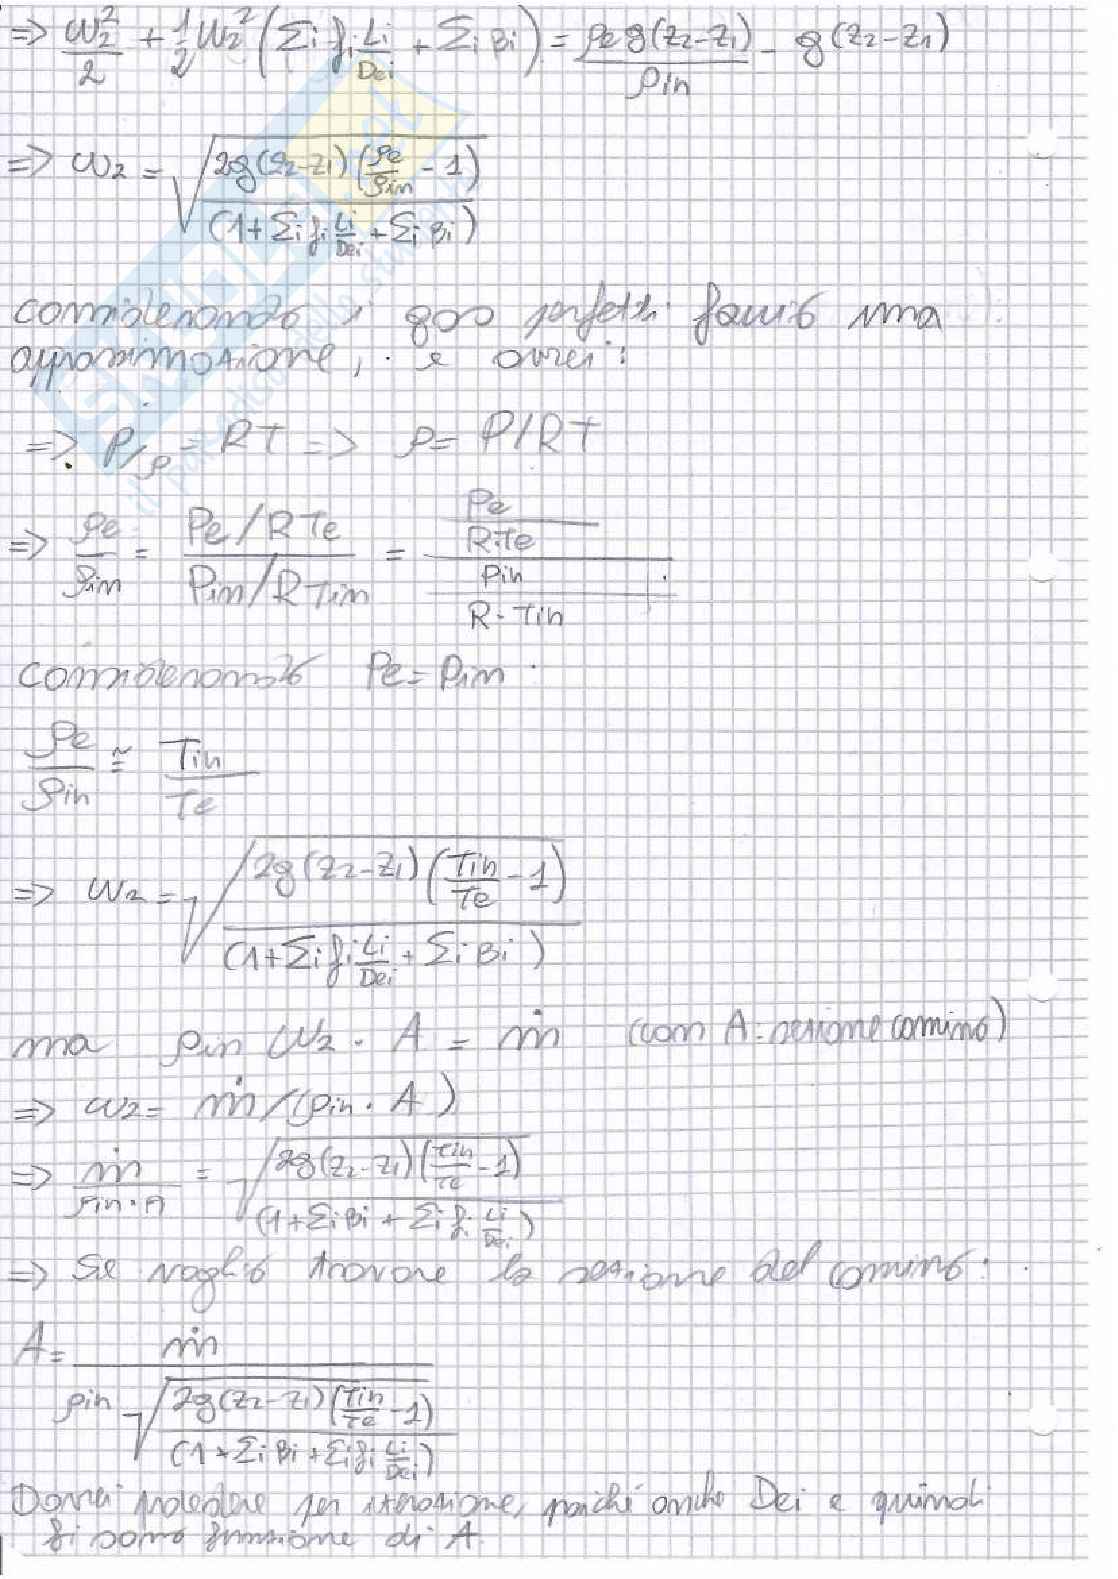 => w₂²/2 + 1/2 w₂² (Σi fi Li/Dei + Σi βi) = ρe g(z₂-z₁)/ρin - g(z₂-z₁)
=> w₂ = √(2g(z₂-z₁)(ρe/ρin - 1) / (1+Σi fi Li/Dei + Σi βi))
considerando i gas perfetti faccio una
approssimazione, e avrei:
=> P/ρ = RT => ρ = P/RT
=> ρe/ρin = (Pe/RTe)/(Pin/RTin) = (Pe/R·Te)/(Pin/R·Tin)
considerando Pe = Pin:
ρe/ρin ≅ Tin/Te
=> w₂ = √(2g(z₂-z₁)(Tin/Te - 1) / (1+Σi fi Li/Dei + Σi βi))
ma ρin w₂ · A = ṁ (con A = sezione camino)
=> w₂ = ṁ/(ρin · A)
=> ṁ/(ρin·A) = √(2g(z₂-z₁)(Tin/Te - 1) / (1+Σi βi + Σi fi Li/Dei))
=> Se voglio trovare la sezione del camino:
A = ṁ / (ρin √(2g(z₂-z₁)(Tin/Te - 1) / (1+Σi βi + Σi fi Li/Dei)))
Dovrei procedere per iterazione, poiché anche Dei e quindi
fi sono funzione di A.
SKUOLA.net
il portale dello studente